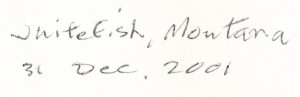 Whitefish, Montana
31 Dec. 2001